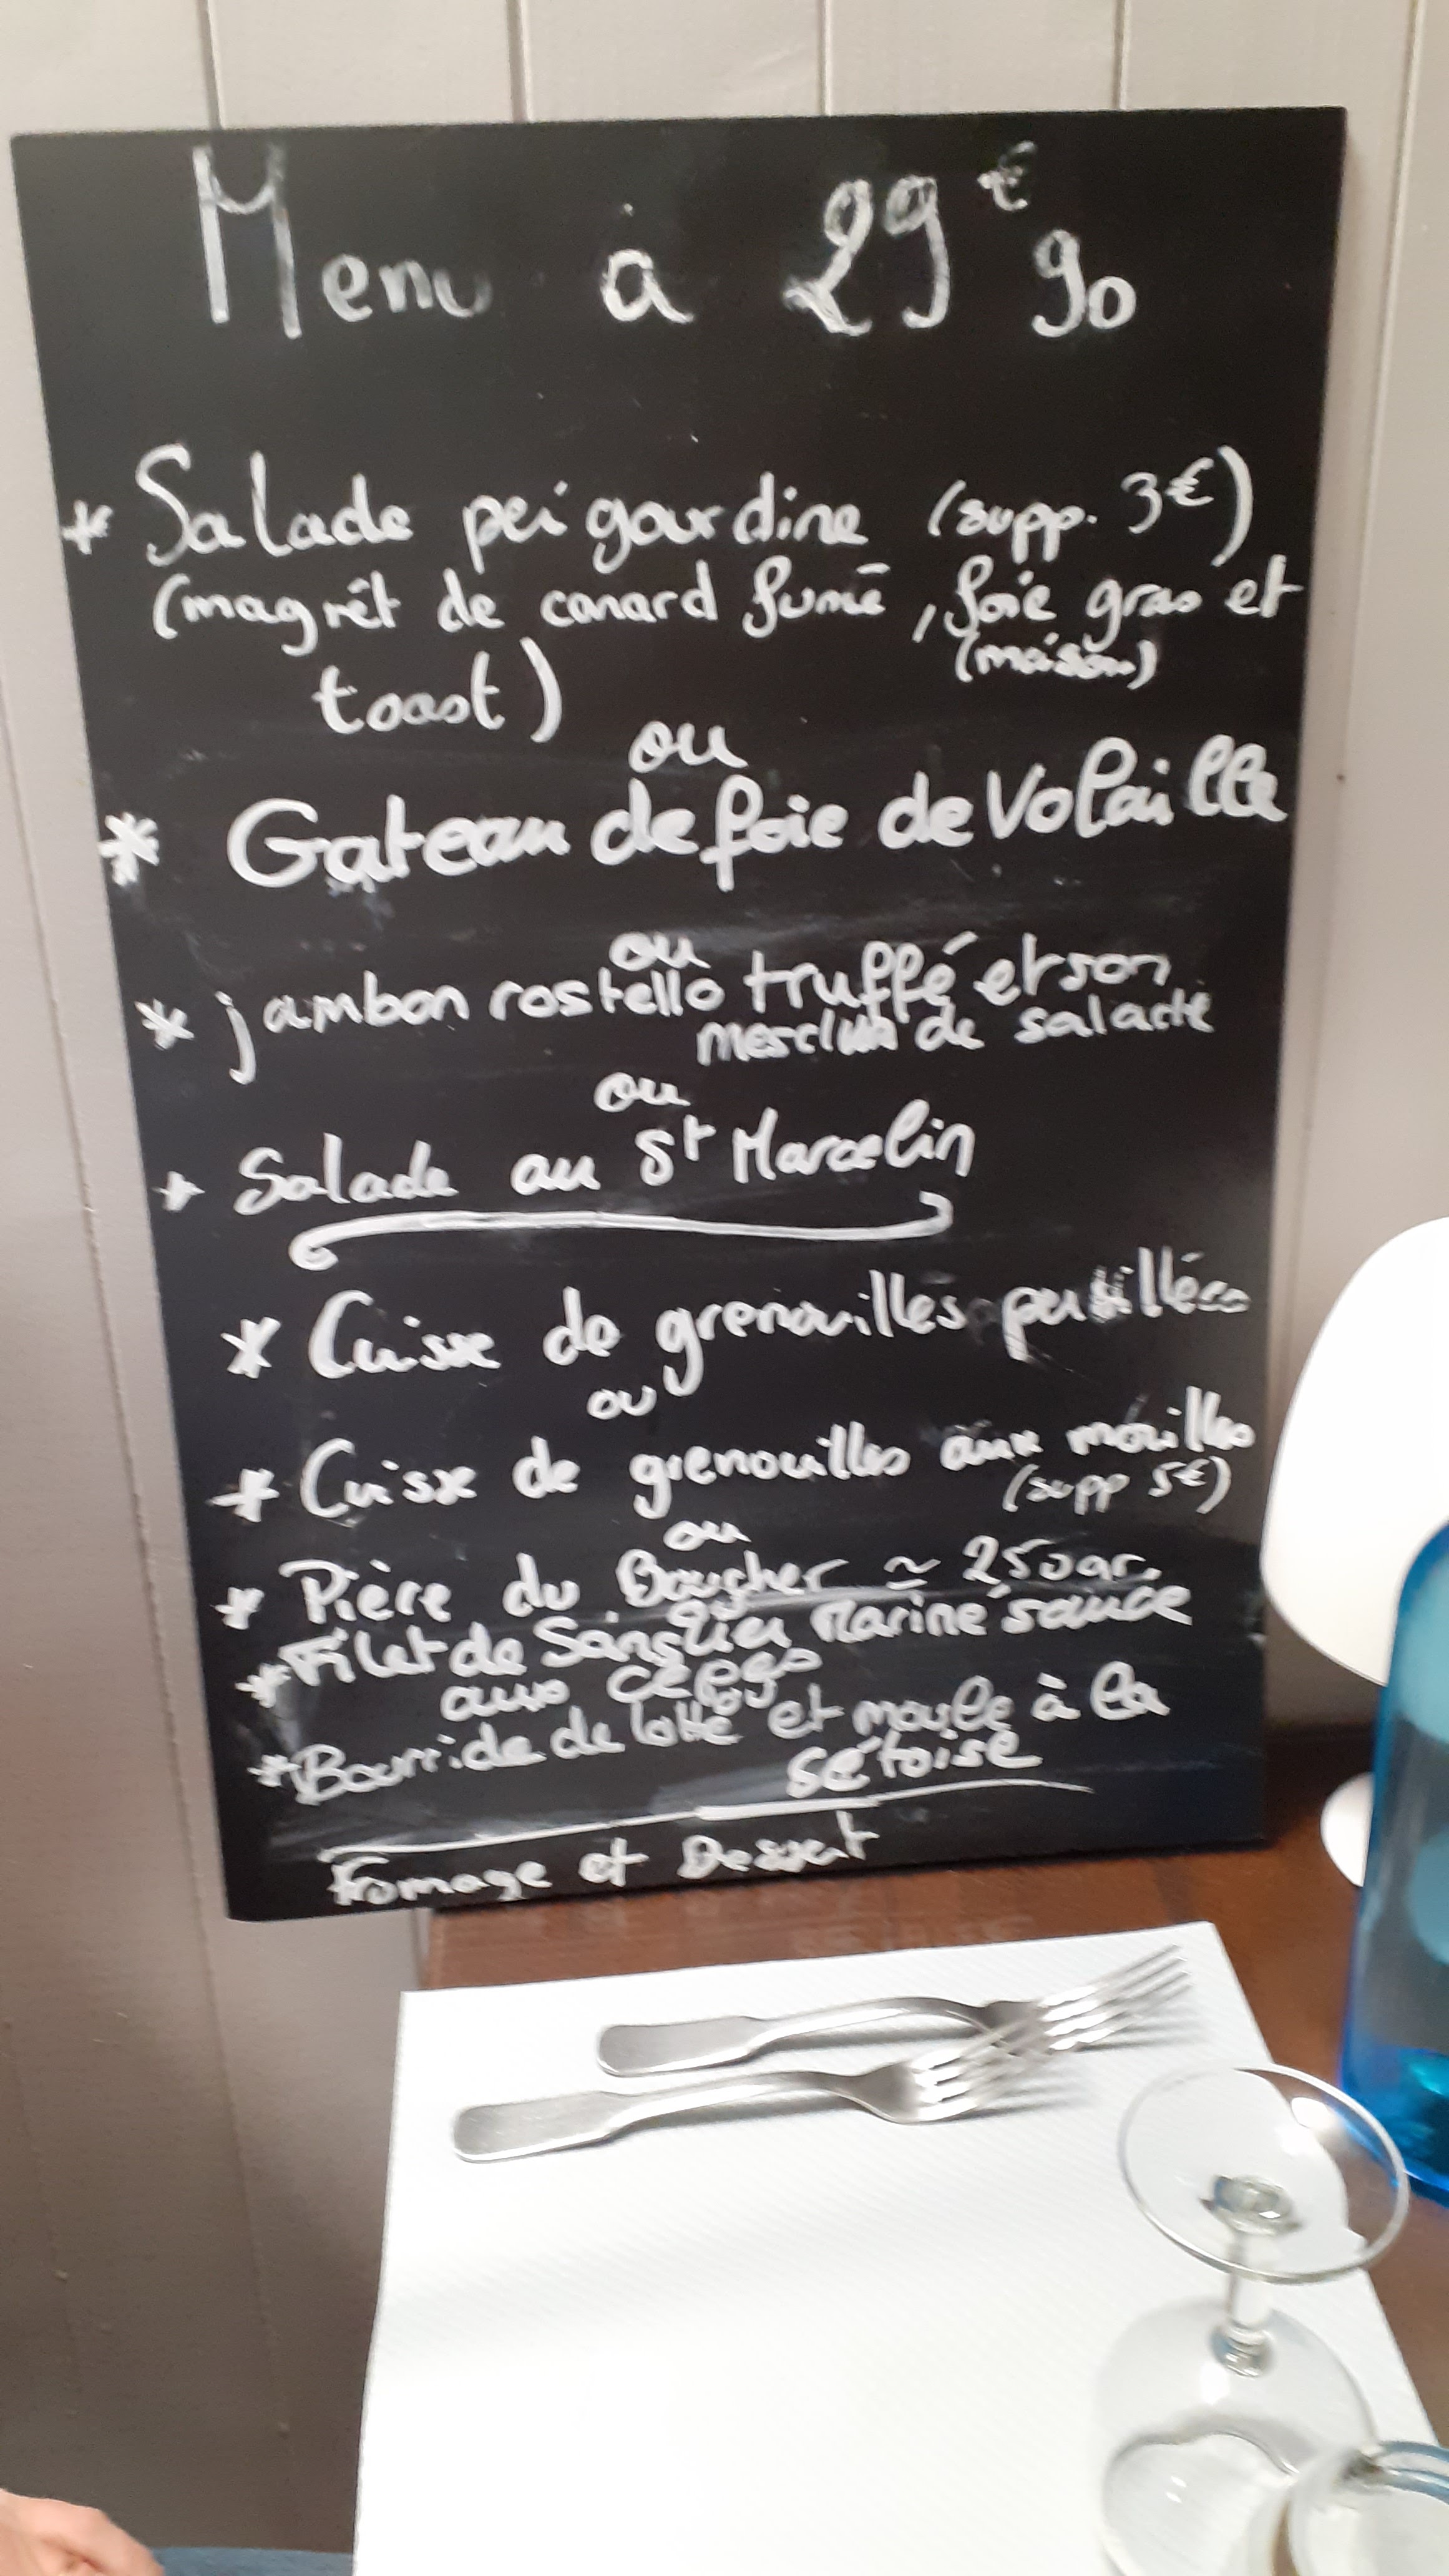 Menu à 29€90
* Salade périgourdine (supp. 3€)
(magrêt de canard fumé, foie gras et
(maison)
toast)
ou
* Gateau de foie de Volaille
ou
* jambon rostello truffé et son
mesclun de salade
ou
* Salade au St Marcelin
* Cuisse de grenouilles persillées
ou
* Cuisse de grenouilles aux morilles
(supp 5€)
ou
* Pière du Boucher ≃ 250gr.
* Filet de Sanglier Mariné sauce
aux cèpes
ou
* Bourride de lotte et moule à la
sétoise
Fromage et Dessert